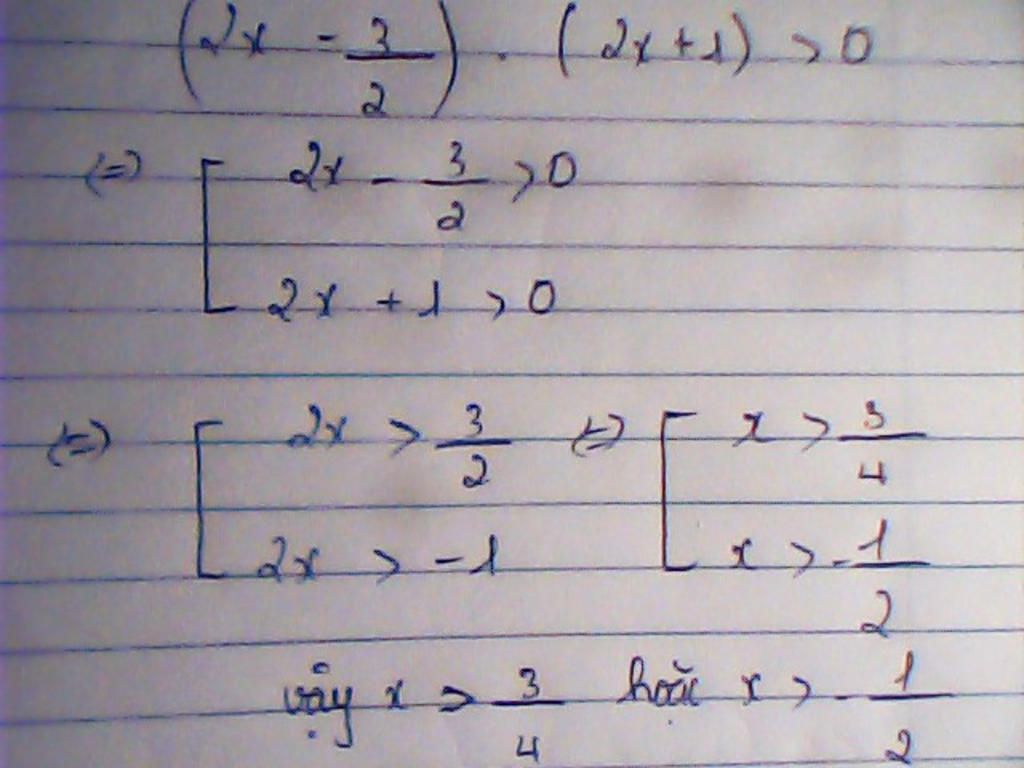 (2x - 3/2) . (2x + 1) > 0
(=) [ 2x - 3/2 > 0
2x + 1 > 0
(=) [ 2x > 3/2 (=) [ x > 3/4
2x > -1 x > -1/2
vậy x > 3/4 hoặc x > -1/2